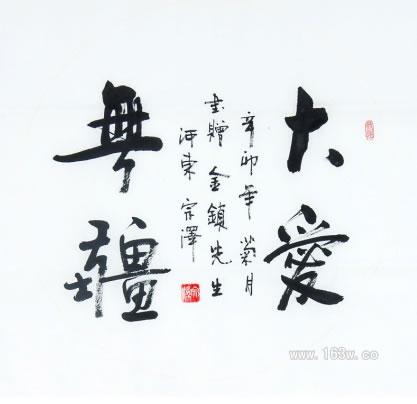 大愛
無疆
辛卯年菊月
書贈金鎮先生
河東宗澤
www.163w.co